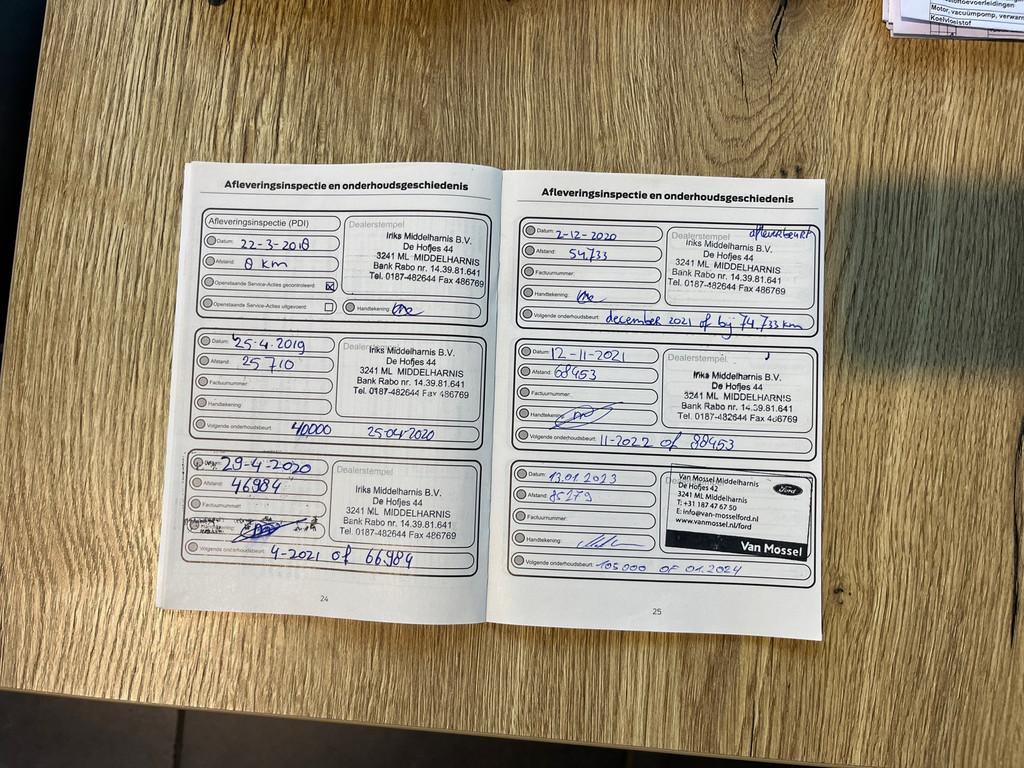 stoftoevoerleidingen
Motor, vacuümpomp, verwarm
Koelvloeistof
Afleveringsinspectie en onderhoudsgeschiedenis
Afleveringsinspectie (PDI)
Datum: 22-3-2018
Afstand: 8 km
Openstaande Service-Acties gecontroleerd:
Openstaande Service-Acties uitgevoerd:
Dealerstempel
Iriks Middelharnis B.V.
De Hofjes 44
3241 ML MIDDELHARNIS
Bank Rabo nr. 14.39.81.641
Tel. 0187-482644 Fax 486769
Handtekening:
Datum: 25-4-2019
Afstand: 25710
Factuurnummer:
Handtekening:
Volgende onderhoudsbeurt: 40,000 25-04-2020
Dealerstempel
Iriks Middelharnis B.V.
De Hofjes 44
3241 ML MIDDELHARNIS
Bank Rabo nr. 14.39.81.641
Tel. 0187-482644 Fax 486769
29-4-2020
Afstand: 46984
Volgende onderhoudsbeurt: 4-2021 of 66984
Dealerstempel
Iriks Middelharnis B.V.
De Hofjes 44
3241 ML MIDDELHARNIS
Bank Rabo nr. 14.39.81.641
Tel. 0187-482644 Fax 486769
24
Afleveringsinspectie en onderhoudsgeschiedenis
Datum: 2-12-2020
Afstand: 54.733
Factuurnummer:
Handtekening:
Volgende onderhoudsbeurt: december 2021 of bij 74.733 km
Dealerstempel afleverbeurt
Iriks Middelharnis B.V.
De Hofjes 44
3241 ML MIDDELHARNIS
Bank Rabo nr. 14.39.81.641
Tel. 0187-482644 Fax 486769
Datum: 12-11-2021
Afstand: 68453
Factuurnummer:
Handtekening:
Volgende onderhoudsbeurt: 11-2022 of 88453
Dealerstempel
Iriks Middelharnis B.V.
De Hofjes 44
3241 ML MIDDELHARNIS
Bank Rabo nr. 14.39.81.641
Tel. 0187-482644 Fax 486769
Datum: 13.01.2023
Afstand: 85279
Factuurnummer:
Handtekening:
Volgende onderhoudsbeurt: 105000 OF 01.2024
Van Mossel Middelharnis
De Hofjes 42
3241 ML Middelharnis
T: +31 187 47 67 50
E: info@van-mosselford.nl
www.vanmossel.nl/ford
Ford
Van Mossel
25